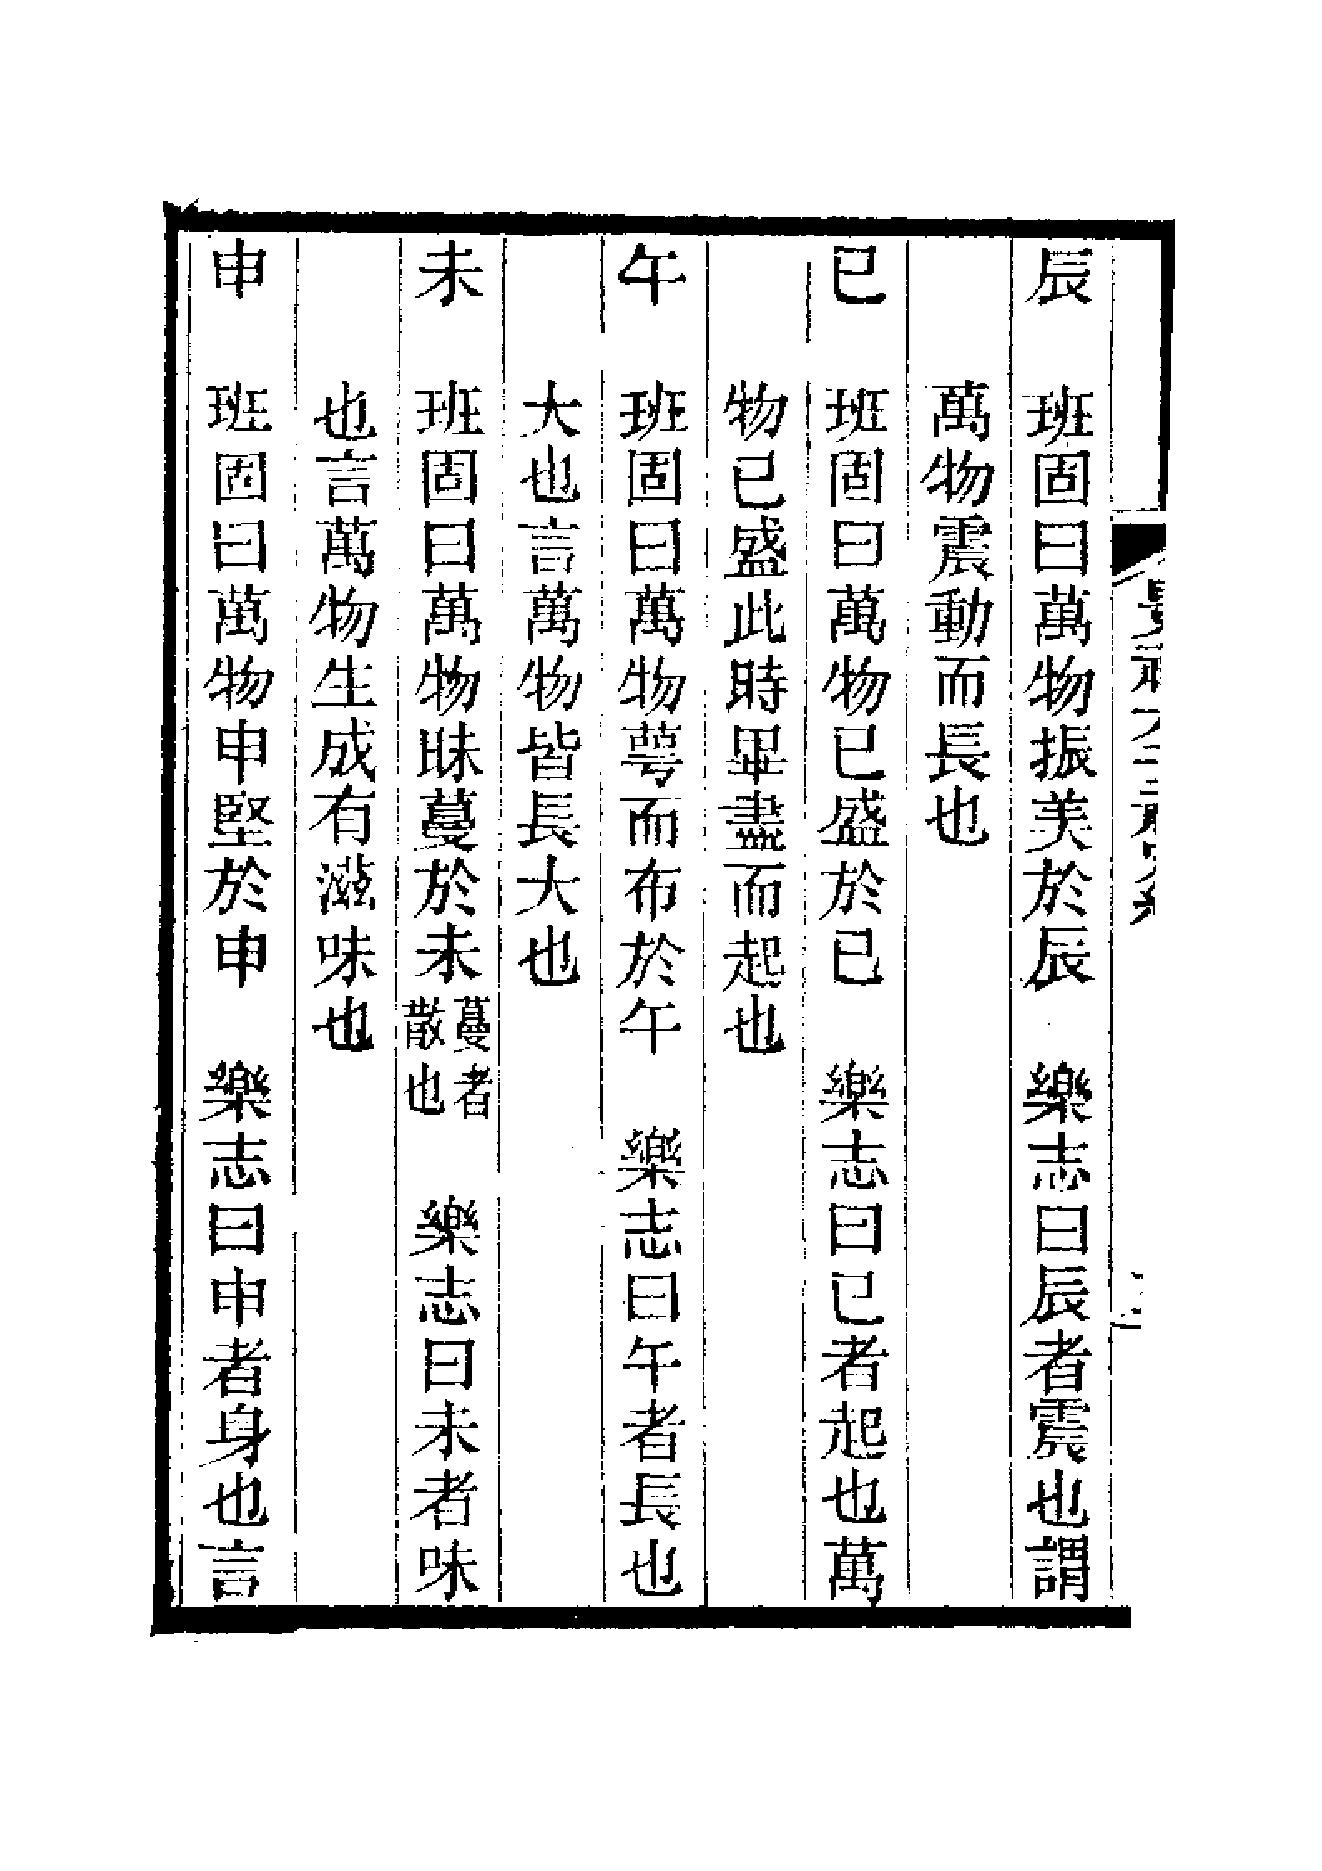 辰　班固曰萬物振美於辰　樂志曰辰者震也謂
萬物震動而長也
巳　班固曰萬物巳盛於巳　樂志曰巳者起也萬
物巳盛此時畢盡而起也
午　班固曰萬物萼而布於午　樂志曰午者長也
大也言萬物皆長大也
未　班固曰萬物昧蔓於未蔓者散也　樂志曰未者味
也言萬物生成有滋味也
申　班固曰萬物申堅於申　樂志曰申者身也言